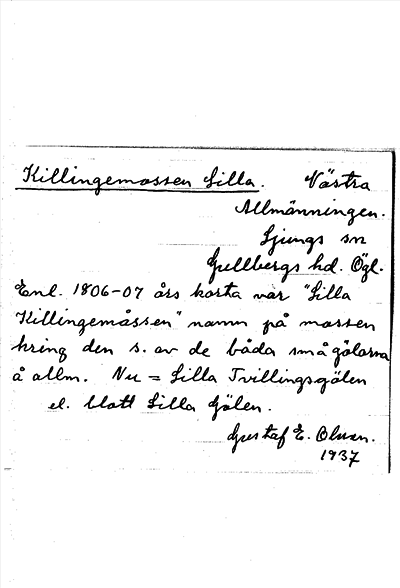 Killingemossen Lilla. Västra
Allmänningen.
Ljungs sn
Gullbergs hd. Ögl.
Enl. 1806-07 års karta var "Lilla
Killingemåssen" namn på mossen
kring den s. av de båda små gölarna
å allm. Nu = Lilla Tvillingsgölen
el. blott Lilla Gölen.
Gustaf E. Olsson.
1937